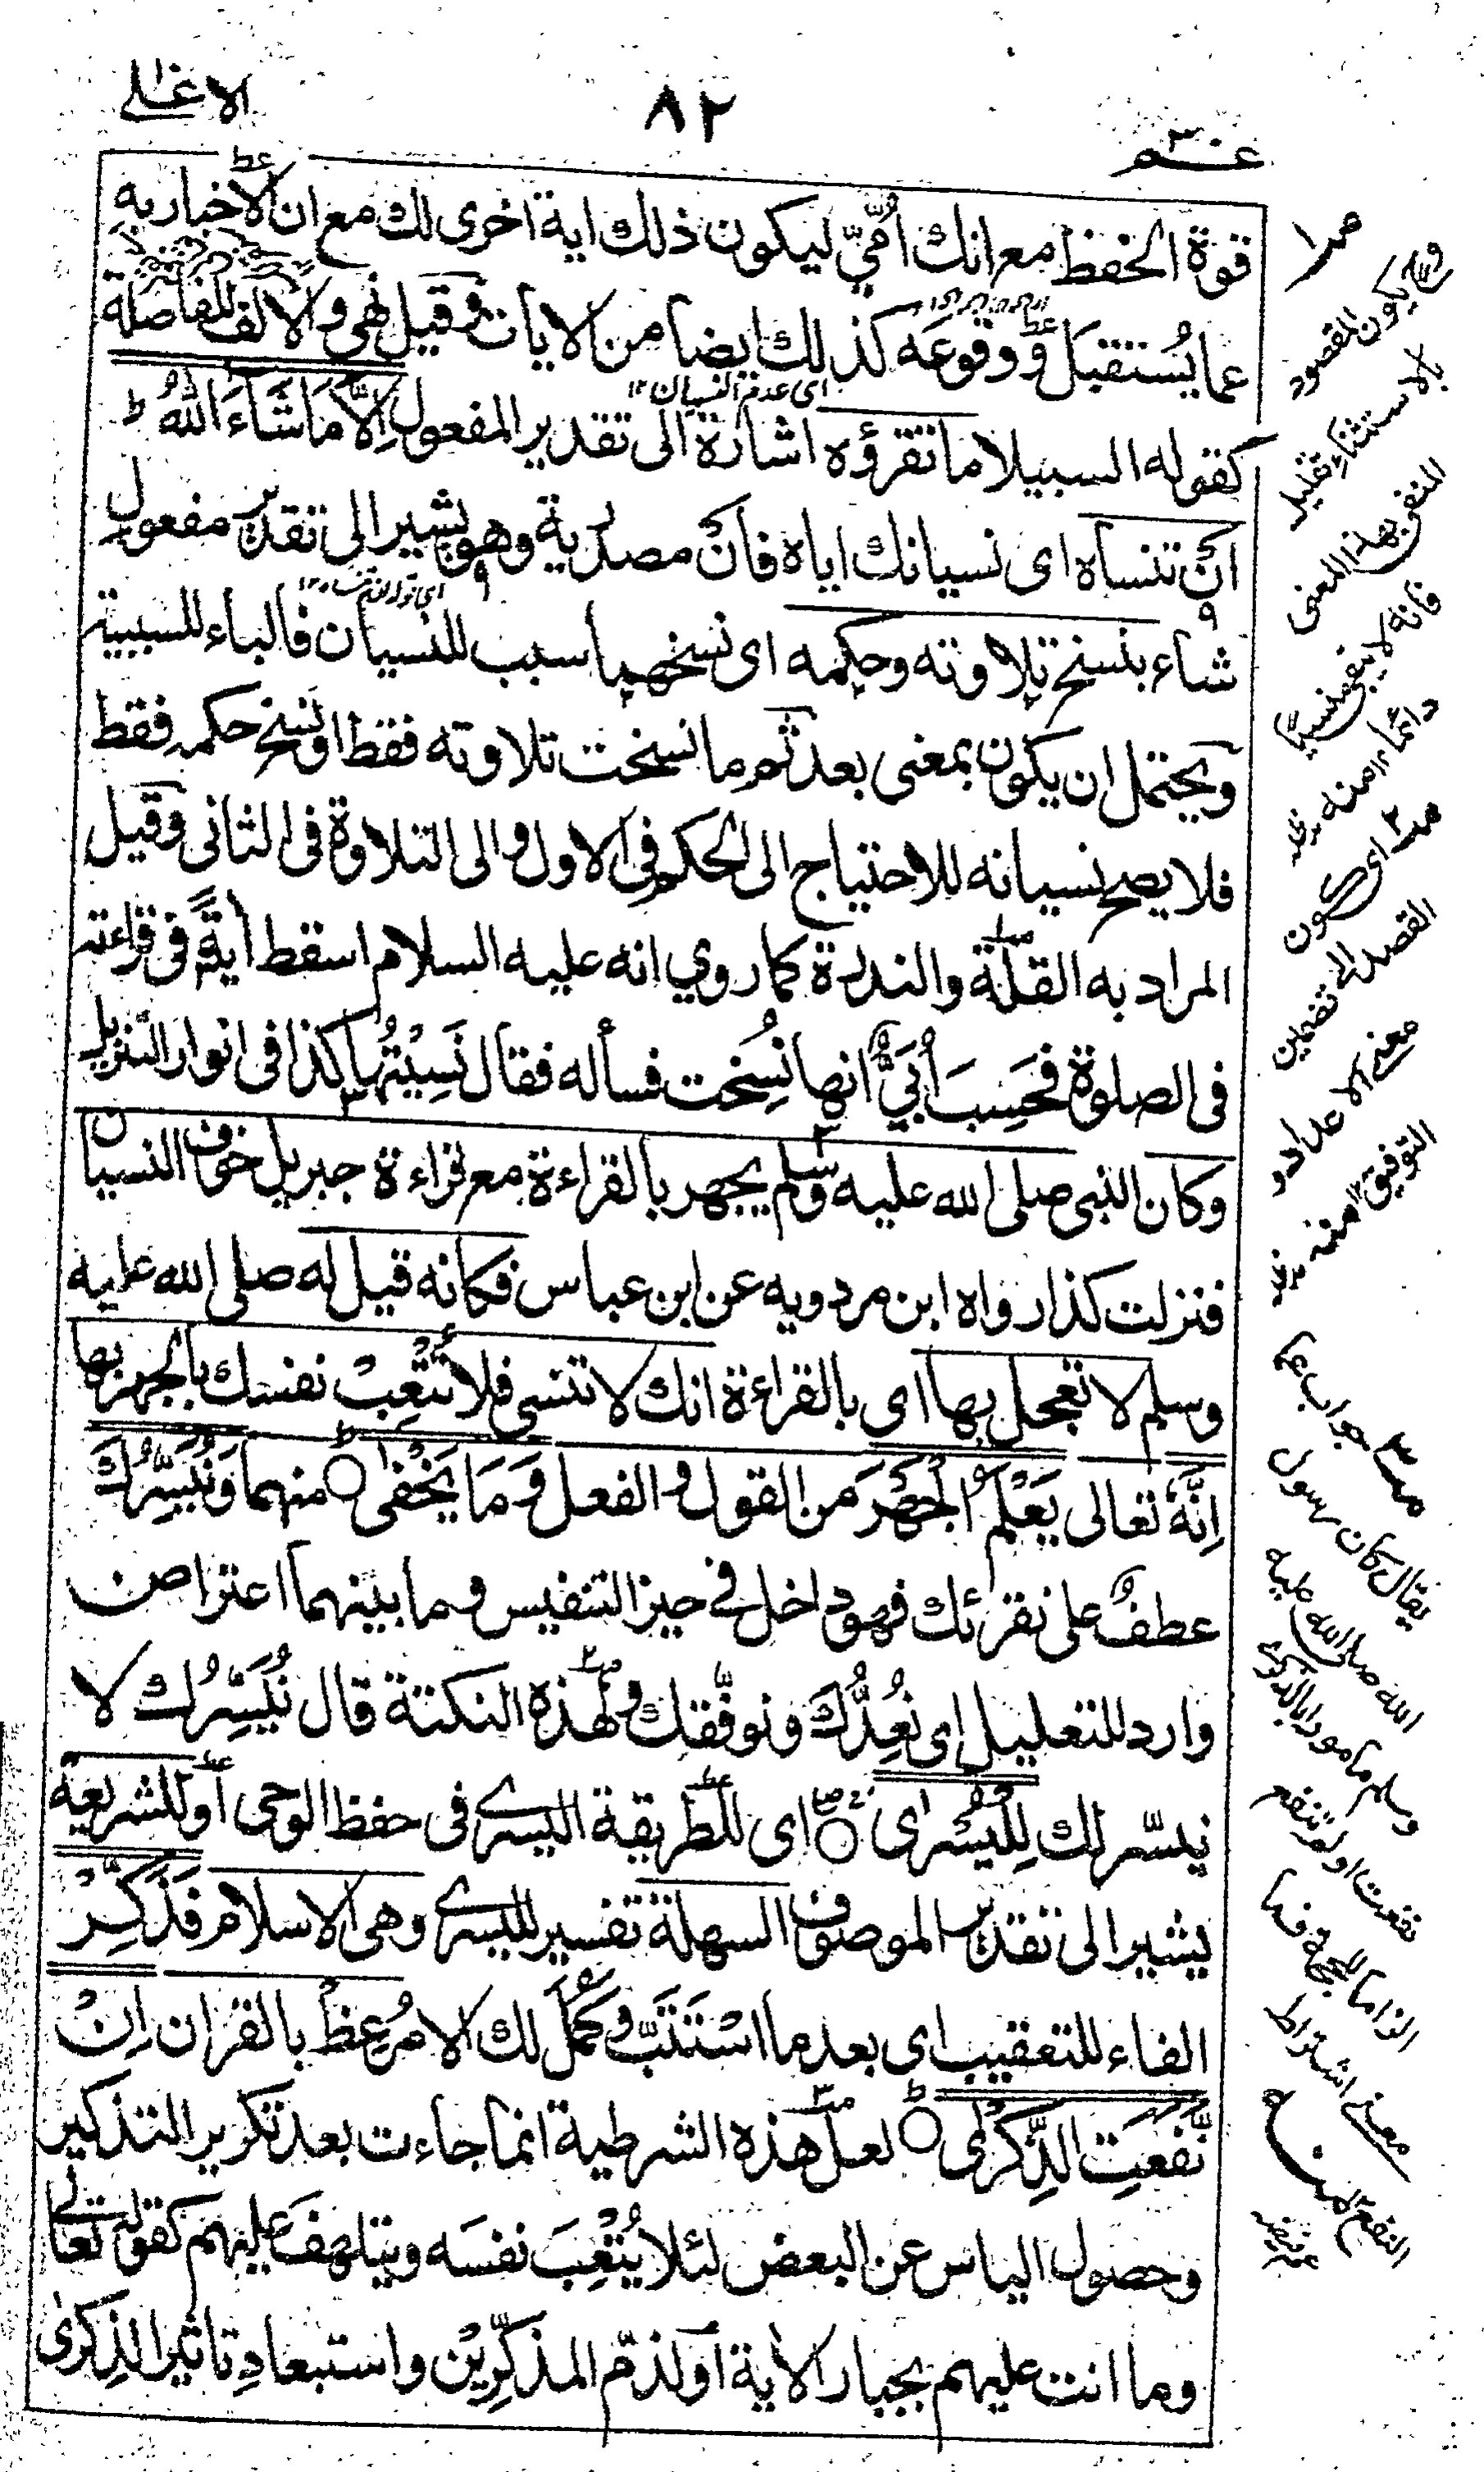 عم ٣٠
٨٢
الاعلى
قوة الحفظ مع انك اُمّيّ ليكون ذلك اية اخرى لك مع ان الاخبار به
عما يُستقبَل و وقوعَه كذلك ايضا من الايات وقيل نهي والالف للفاصلة
كقوله السبيلا ما تقرؤه اشارة الى تقدير المفعول اِلَّا مَا شَآءَ اللّٰهُ ط
اى عدم النسيان ١٢
اَنْ تنساه اى نسيانك اياه فاَنْ مصدرية وهو يشير الى تقدير مفعول
شاء بنسخ تلاوته وحكمه اى نسخهما سبب للنسيان فالباء للسببية
ويحتمل ان يكون بمعنى بعد ثم ما نسخت تلاوته فقط او نسخ حكمه فقط
فلا يصح نسيانه للاحتياج الى الحكم في الاول والى التلاوة فى الثانى وقيل
المراد به القلّة والندرة كما روي انه عليه السلام اسقط اٰيةً فى قراءته
فى الصلوة فحَسِبَ اُبَيٌّ انها نُسِخت فسأله فقال نَسِيْتُها كذا فى انوار التنزيل
وكان النبى صلى الله عليه وسلم يجهر بالقراءة مع قراءة جبريل خوف النسيان
فنزلت كذا رواه ابن مردويه عن ابن عباس فكانه قيل له صلى الله عليه
وسلم لا تعجل بها اى بالقراءة انك لا تنسى فلا تُتْعِبْ نفسك بالجهر بها
اِنَّهٗ تعالى يَعْلَمُ الْجَهْرَ من القول والفعل وَمَا يَخْفٰى ○ منهما وَنُيَسِّرُكَ
عطفٌ على نقرئك فهو داخل في حيز التنفيس وما بينهما اعتراض
وارد للتعليل اى نُعِدُّكَ ونوفّقك ولهذه النكتة قال نُيَسِّرُك لا
نيسّر لك لِلْيُسْرٰى ○ اى للطريقة اليسرے فى حفظ الوحى او للشريعة
يشير الى تقدير الموصوف السهلة تفسير لليسرے وهى الاسلام فَذَكِّرْ
الفاء للتعقيب اى بعد ما اسْتَتَبَّ وكمُل لك الامرُ عِظْ بالقرآن اِنْ
نَّفَعَتِ الذِّكْرٰى ○ لعل هذه الشرطية انما جاءت بعد تكرير التذكير
وحصول الياس عن البعض لئلا يُتْعِبَ نفسَه ويتلهفَ عليهم كقوله تعالى
وما انت عليهم بجبار الاية او لذمّ المذكَّرِيْن واستبعادِ تاثير الذِكرٰى
وح يكون المقصود
بالاستثناء تقليد
للنفى بهذا المعنى
فانه لا يبقى نسيا
دائما ١٢ منه
اى كون
القصد الى تضمين
معنے الاعداد و
التوفيق ١٢ منه
جواب عما
يقال كان رسول
الله صلى الله عليه
وسلم مامورا بالذكرى
نفعت او لم تنفع
الزاما للحجة فما
معنے اشتراط
النفع